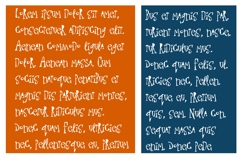 Lorem ipsum dolor sit amet,
consectetuer adipiscing elit.
Aenean commodo ligula eget
dolor. Aenean massa. Cum
sociis natoque penatibus et
magnis dis parturient montes,
nascetur ridiculus mus.
Donec quam felis, ultricies
nec, pellentesque eu, pretium
bus et magnis dis par
turient montes, nasce
tur ridiculus mus.
Donec quam felis, ul
tricies nec, pellen
tesque eu, pretium
quis, sem. Nulla con
sequat massa quis
enim. Donec pede